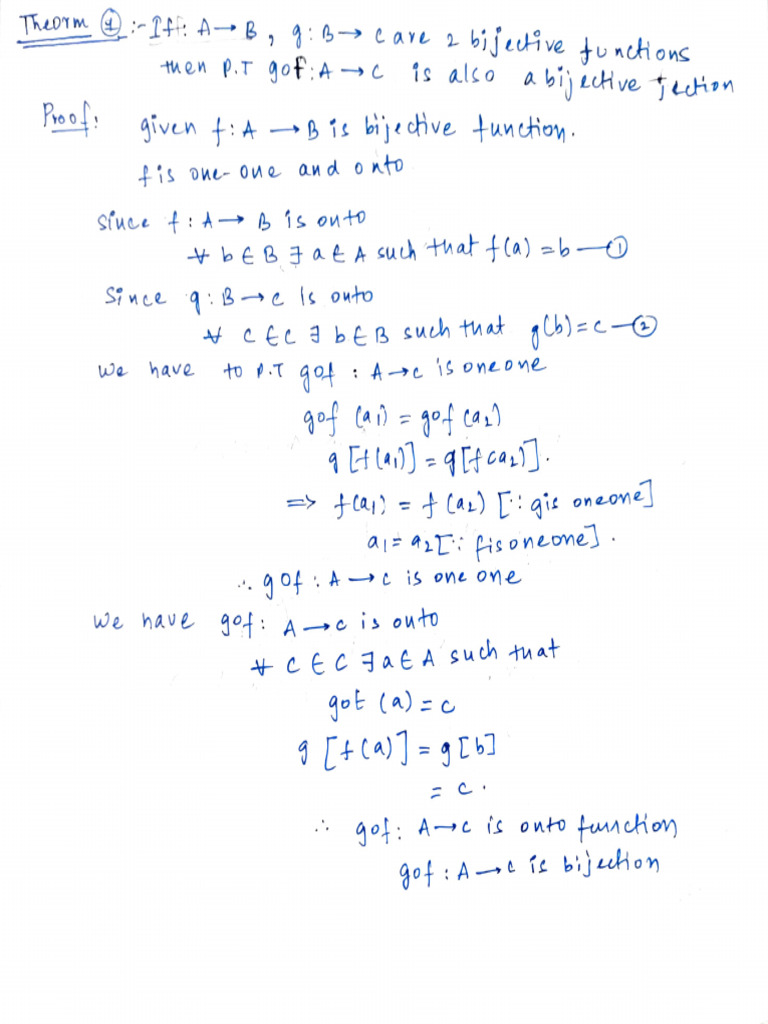 Theorm ① :- If f: A → B, g: B → C are 2 bijective functions
then P.T gof: A → C is also a bijective jection
Proof: given f: A → B is bijective function.
f is one-one and onto
Since f: A → B is onto
∀ b ∈ B ∃ a ∈ A such that f(a) = b — ①
Since g: B → C is onto
∀ C ∈ C ∃ b ∈ B such that g(b) = c — ②
We have to P.T gof : A → C is one one
gof (a₁) = gof (a₂)
g [f(a₁)] = g[f(a₂)].
⇒ f(a₁) = f(a₂) [∵ g is one one]
a₁ = a₂ [∵ f is one one].
∴ gof : A → C is one one
We have gof: A → C is onto
∀ C ∈ C ∃ a ∈ A such that
gof (a) = c
g [f(a)] = g[b]
= c.
∴ gof: A → C is onto function
gof : A → C is bijection